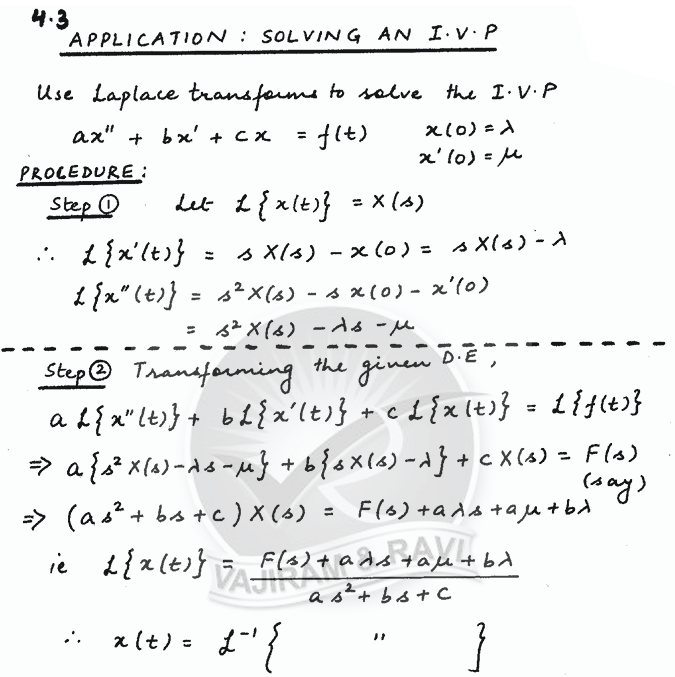 4.3
APPLICATION : SOLVING AN I.V.P
Use Laplace transforms to solve the I.V.P
ax" + bx' + cx = f(t) x(0) = λ
x'(0) = μ
PROCEDURE :
Step ① Let L{x(t)} = X(s)
∴ L{x'(t)} = s X(s) - x(0) = s X(s) - λ
L{x"(t)} = s² X(s) - s x(0) - x'(0)
= s² X(s) - λs - μ
Step ② Transforming the given D.E,
a L{x"(t)} + b L{x'(t)} + c L{x(t)} = L{f(t)}
⇒ a{s² X(s) - λs - μ} + b{s X(s) - λ} + c X(s) = F(s)
(say)
⇒ (as² + bs + c) X(s) = F(s) + aλs + aμ + bλ
ie L{x(t)} = F(s) + aλs + aμ + bλ
as² + bs + c
∴ x(t) = L⁻¹{ " }
VAJIRAM & RAVI